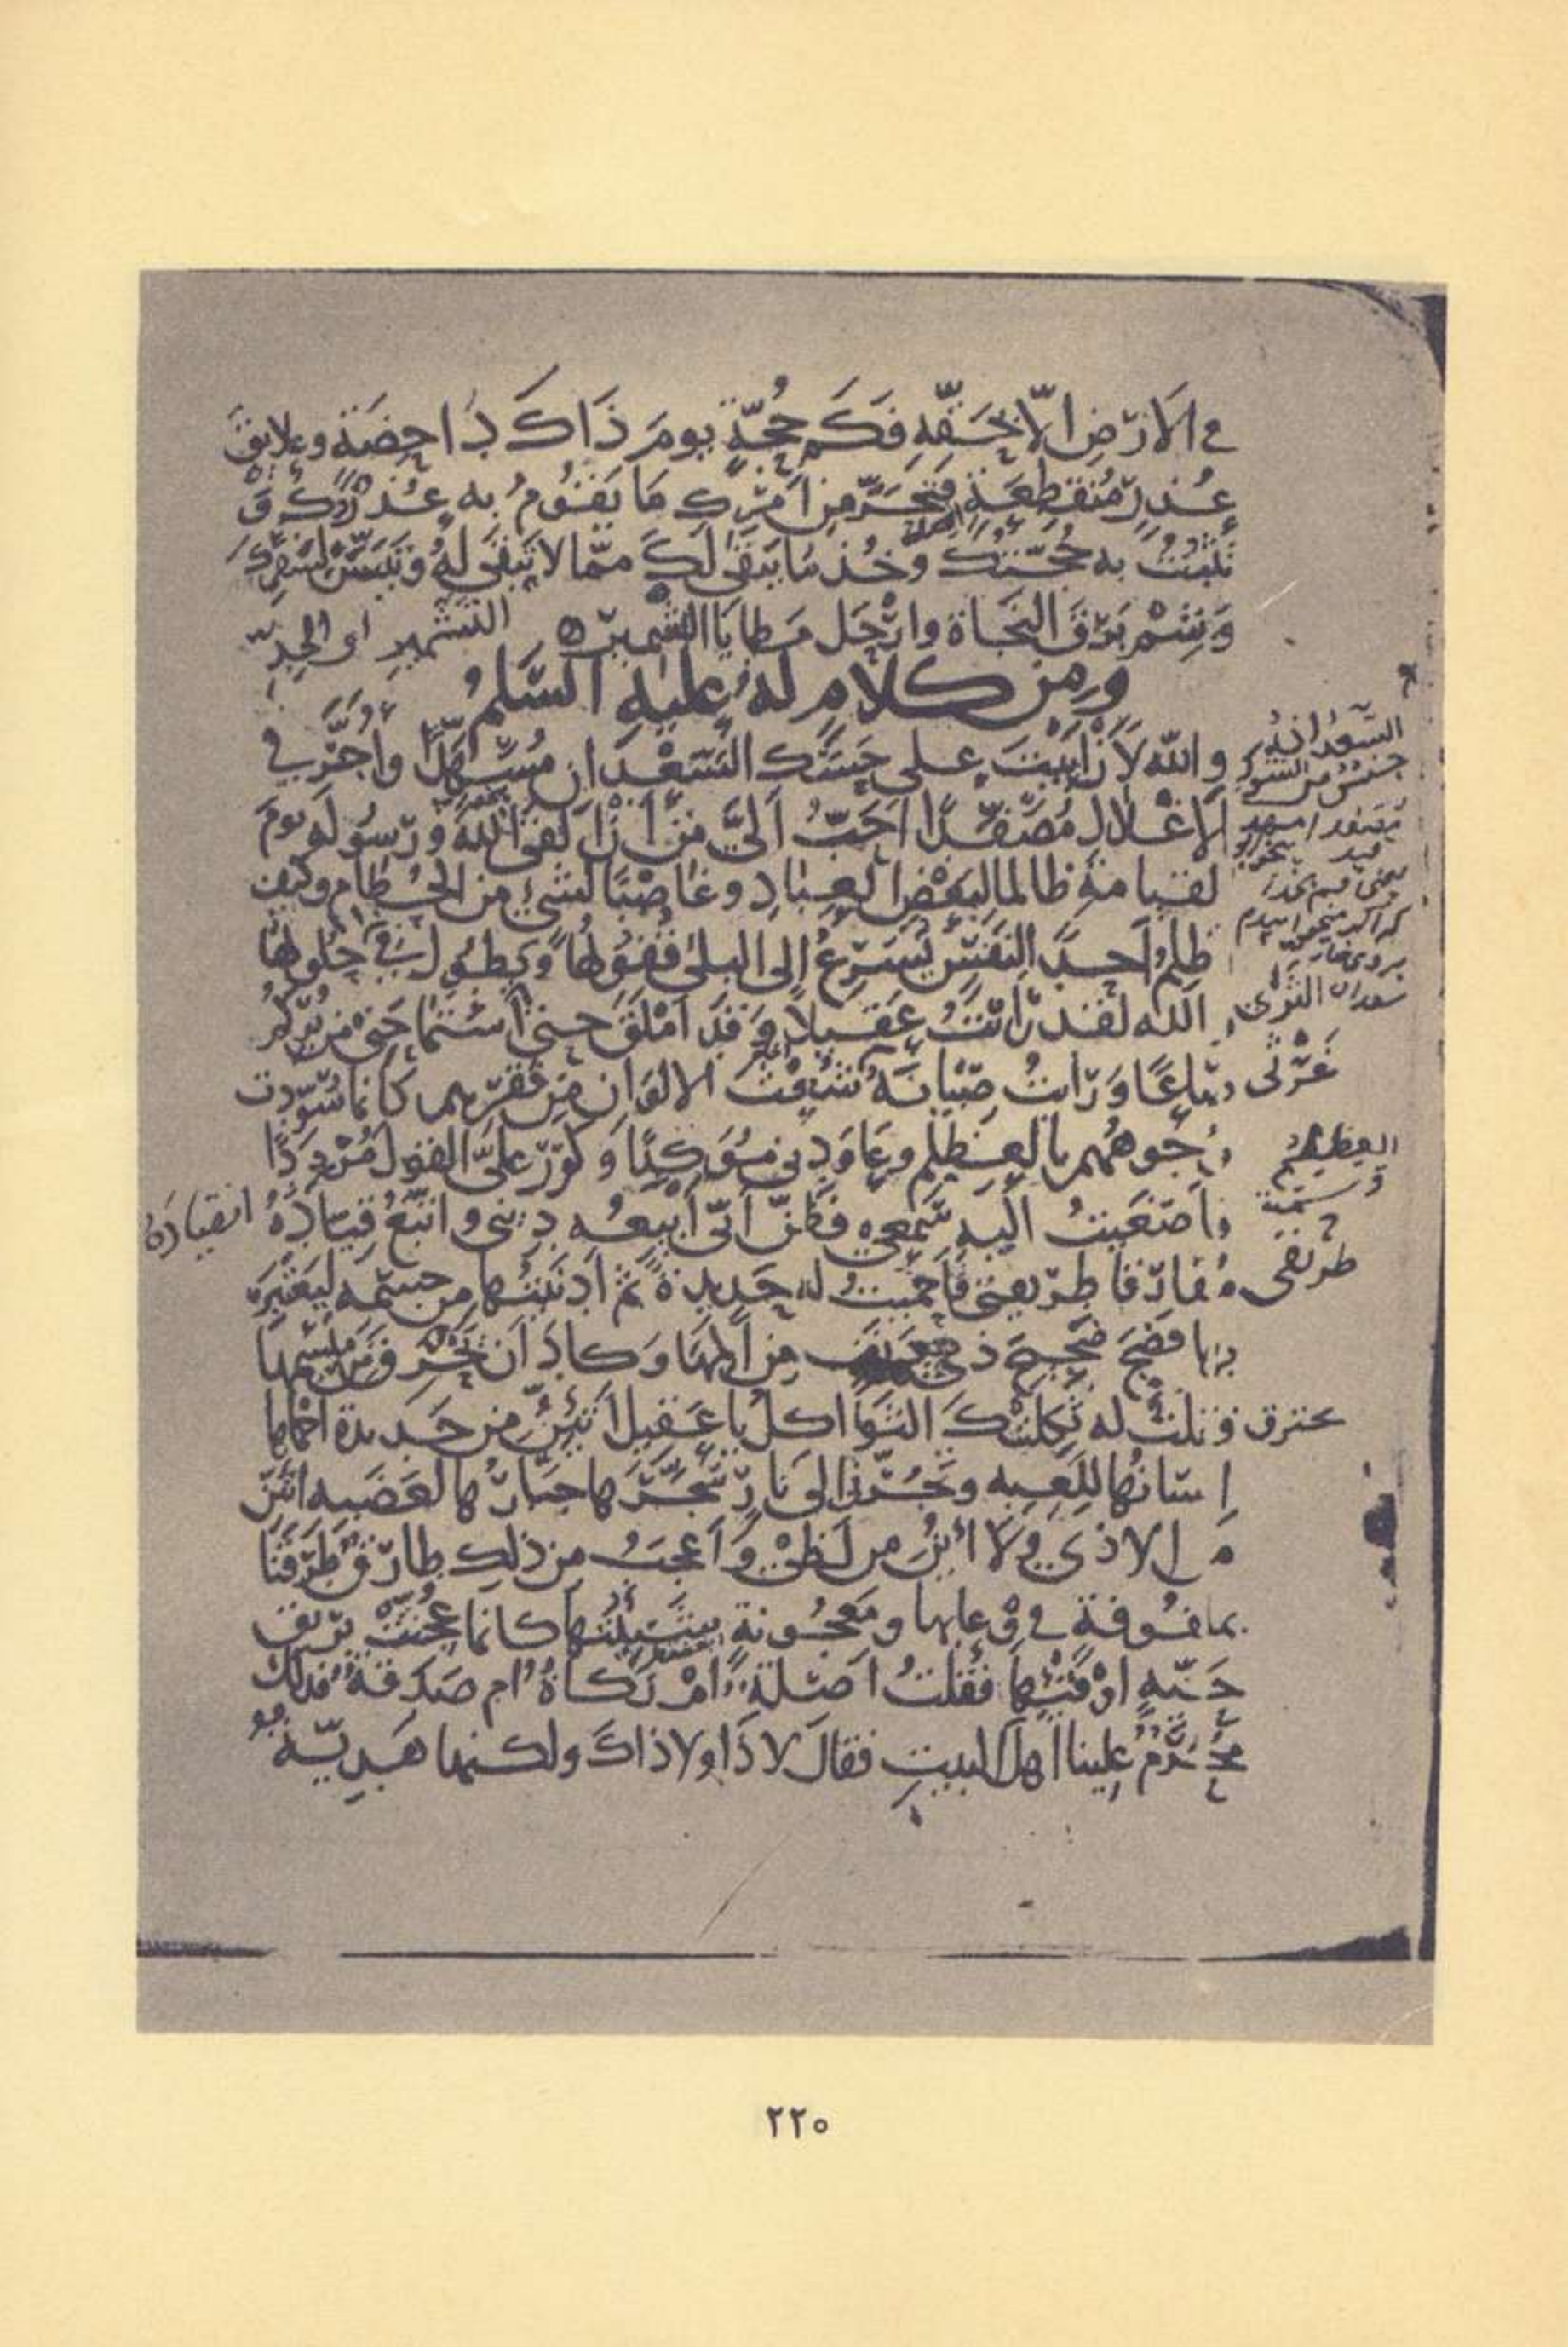 في الارض الّا بحقّه فكم حجّةٍ يوم ذاك داحضة وعلايق
عذرٍ منقطعة فتحرّ من امرك ما يقوم به عذرك و
تثبت به حجّتك وخذ ما يبقى لك ممّا لا تبقى له وتيسّر لسفرك
وشم برق النجاة وارحل مطايا التشمير
التشمير او الجدّ
ومن كلام له عليه السلم
والله لان ابيت على حسك السعدان مسهّدًا واجرّ في
الاغلال مصفّدًا احبّ اليّ من ان القى الله ورسوله يوم
لقيامة ظالما لبعض العباد وغاصبا لشيء من الحطام وكيف
ظلم احدا لنفس يسرع الى البلى قفولها ويطول في حلولها
الله لقد رايت عقيلاً وقد املق حتى استماحني من بركم
صاعًا ورايت صبيانه شعث الالوان من فقرهم كانما سوّدت
وجوههم بالعظلم وعاودني مؤكدًا وكرّر عليّ القول مردّدًا
فاصغيت اليه سمعي فظنّ انّي ابيعه ديني واتّبع قياده
انقياده
مفارقا طريقتي فاحميت له حديدة ثم ادنيتها من جسمه ليعتبر
بها فضجّ ضجيج ذي دنف من المها وكاد ان يحترق من ميسمها
يحترق
فقلت له ثكلتك الثواكل يا عقيل اتئنّ من حديدة احماها
انسانها للعبه وتجرّني الى نار سجّرها جبارها لغضبه اتئنّ
من الاذى ولا ائنّ من لظى واعجب من ذلك طارق طرقنا
بملفوفة في وعايها ومعجونة شنئتها كانما عجنت بريق
حيّة او قيئها فقلت اصلة ام زكاة ام صدقة فذلك
محرّم علينا اهل البيت فقال لا ذا ولا ذاك ولكنها هديّة
السعدان
العظلم
طريقي
٢٢٠